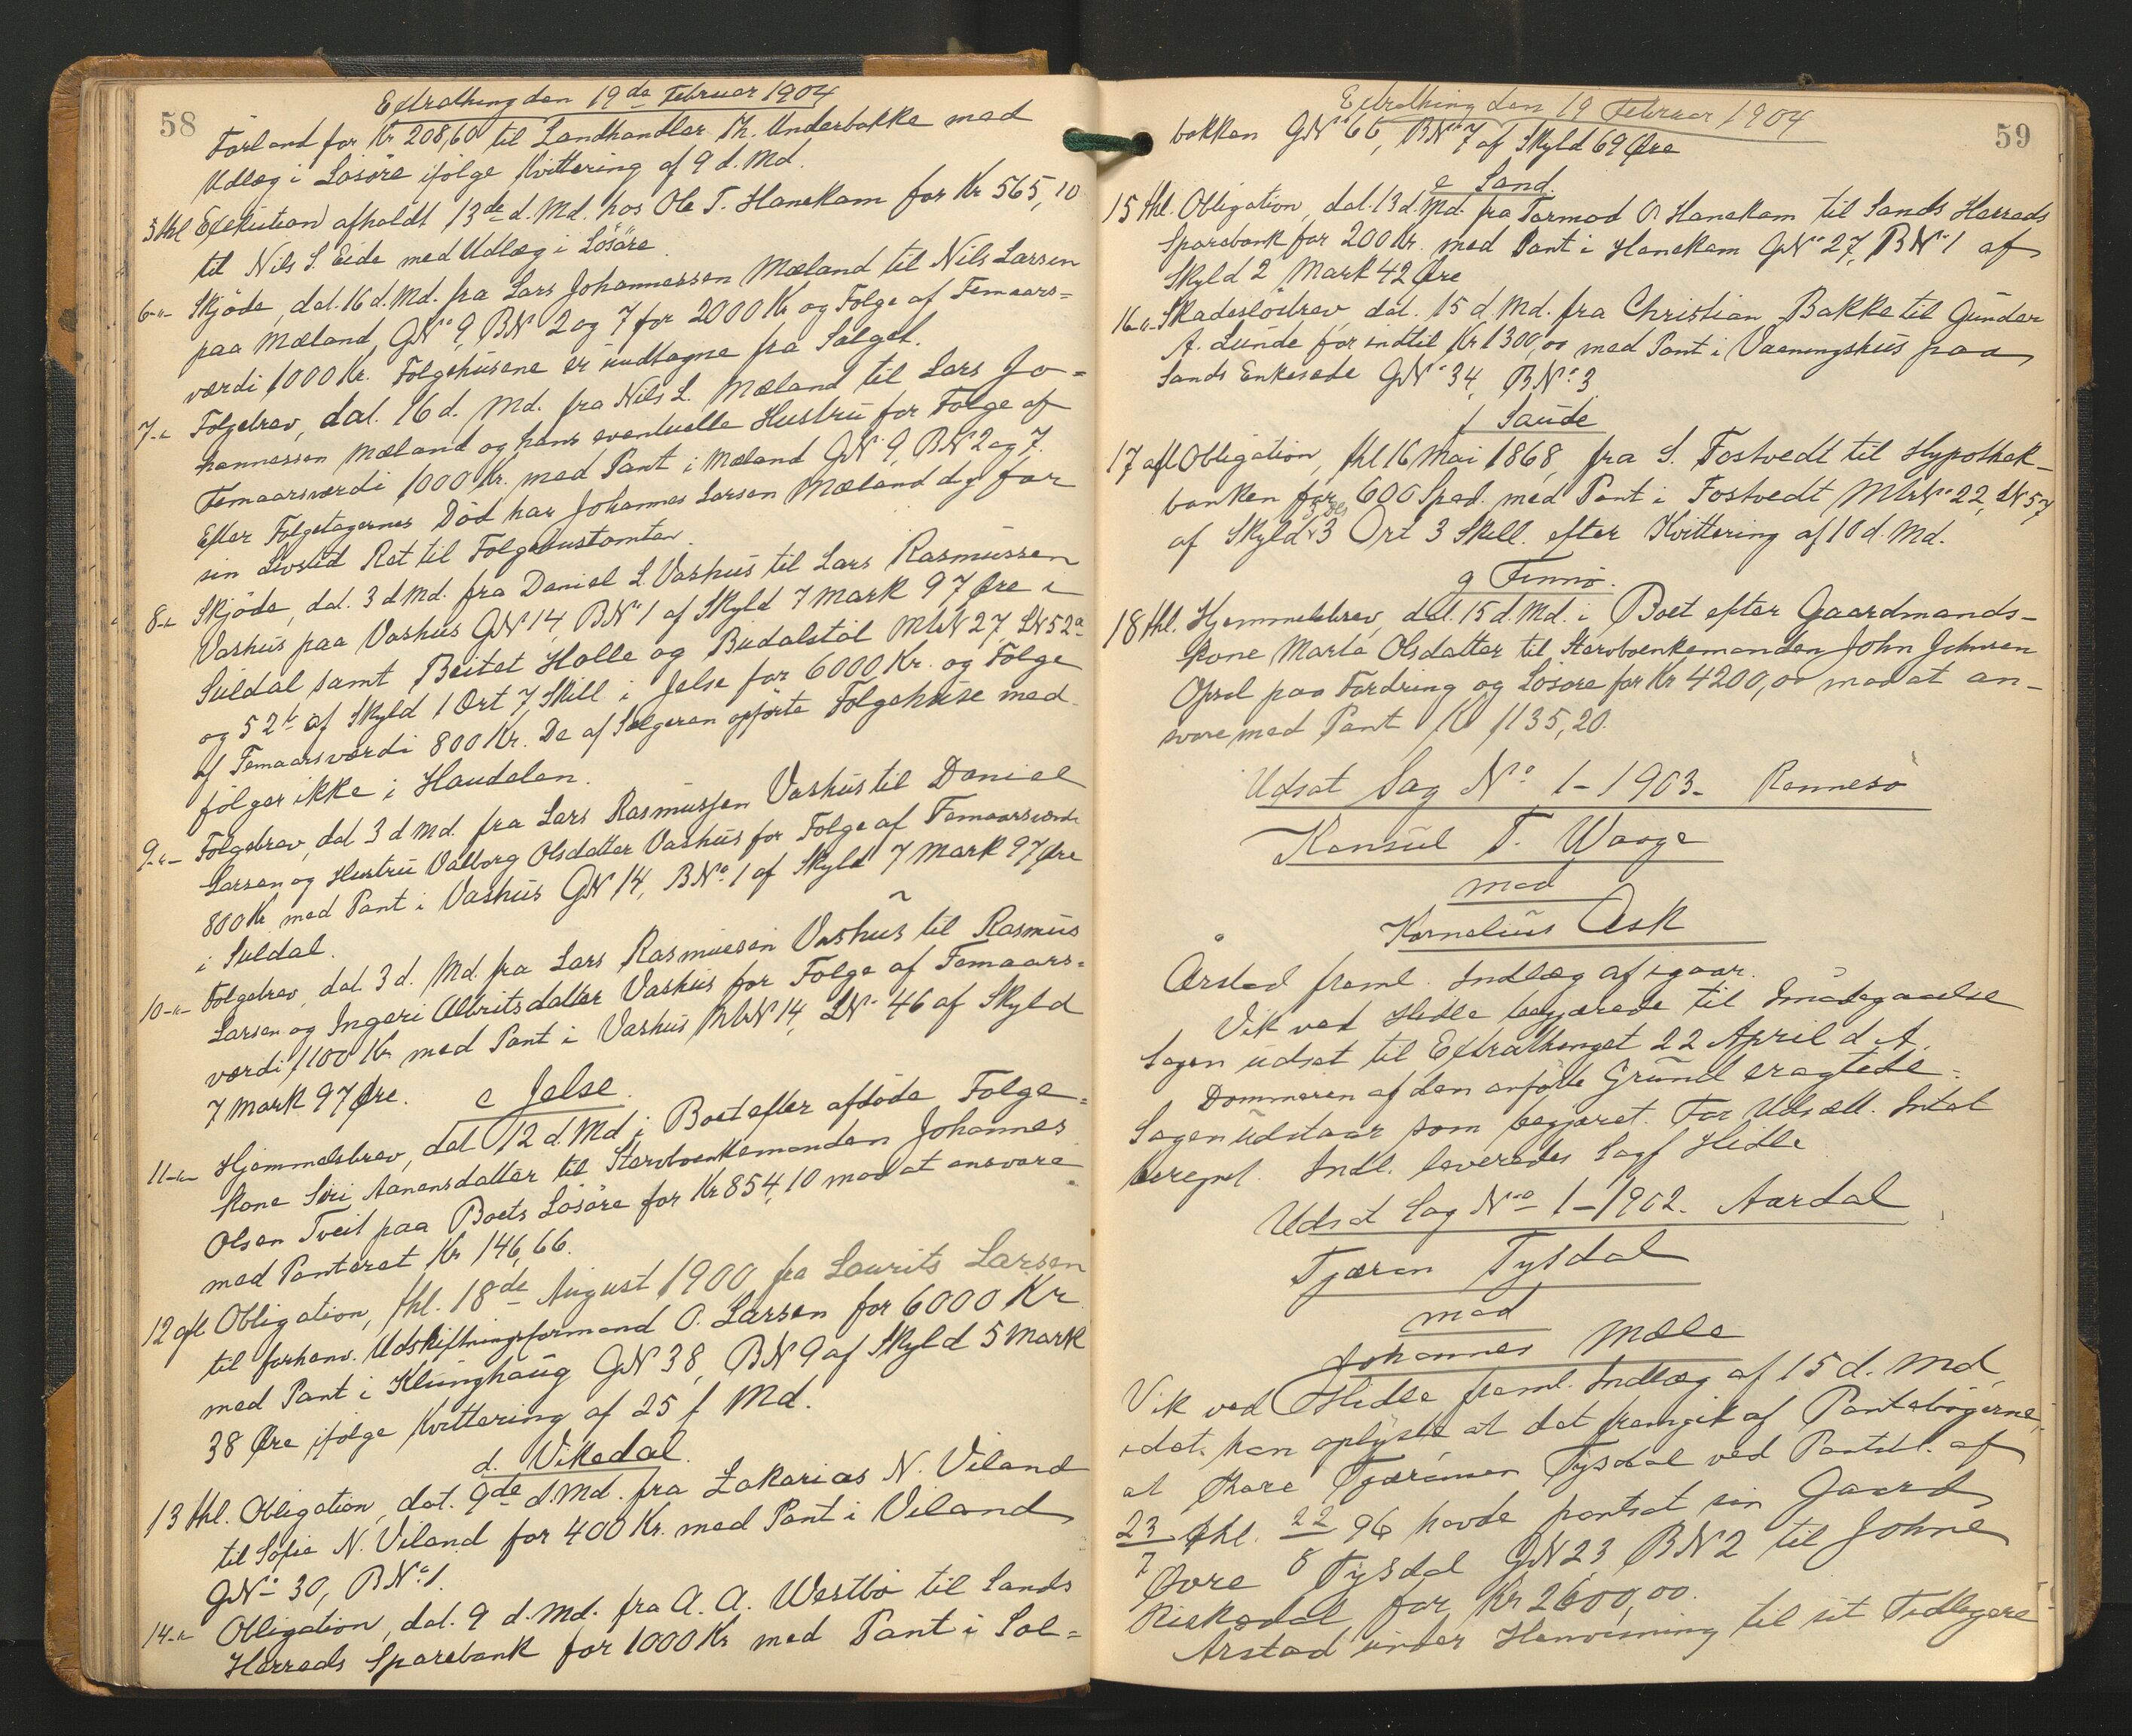 58
Extrathing den 19de Februar 1904
Førland for Kr 208,60 til Landhandler Th. Underbakke med
Udlæg i Løsøre ifølge Kvittering af 9 d. Md.
5 thl Exekution afholdt 13de d. Md. hos Ole T. Hanekam for Kr 565,10
til Nils S. Eide med Udlæg i Løsøre.
6-"- Skjøde, dat. 16 d. Md. fra Lars Johannessen Mæland til Nils Larsen
paa Mæland, GN° 9, BN 2 og 7 for 2000 Kr og Følge af Femaars=
værdi 1000 Kr. Følgehusene er undtagne fra Salget.
7-"- Følgebrev, dat. 16 d. Md. fra Nils L. Mæland til Lars Jo=
hannessen Mæland og hans eventuelle Hustru for Følge af
Femaarsværdi 1000 Kr. med Pant i Mæland GN 9, BN 2 og 7.
Efter Følgetagernes Død har Johannes Larsen Mæland dy for
sin Livstid Ret til Følgehustomter.
8-"- Skjøde, dat. 3 d Md. fra Daniel L. Vashus til Lars Rasmussen
Vashus paa Vashus GN 14, BN° 1 af Skyld 7 Mark 97 Øre i
Suldal samt Beitet Holle og Budalstøl MN 27, LN 52a
og 52b af Skyld 1 Ort 7 Skill i Jelse for 6000 Kr. og Følge
af Femaarsværdi 800 Kr. De af Sælgeren opførte Følgehuse med-
følger ikke i Handelen.
9-"- Følgebrev, dat 3 d Md. fra Lars Rasmussen Vashus til Daniel
Larsen og Hustru Valborg Olsdatter Vashus for Følge af Femaarsværdi
800 Kr med Pant i Vashus GN 14, BN° 1 af Skyld 7 Mark 97 Øre
i Suldal.
10-"- Følgebrev, dat 3 d. Md. fra Lars Rasmussen Vashus til Rasmus
Larsen og Ingeri Albritsdatter Vashus for Følge af Femaars=
værdi 1100 Kr. med Pant i Vashus MN 14, LN° 46 af Skyld
7 Mark 97 Øre.
c Jelse.
11-"- Hjemmelsbrev, dat 12 d. Md i Boet efter afdøde Følge=
kone Siri Aanensdatter til Stervboenkemanden Johannes
Olsen Tveit paa Boets Løsøre for Kr 854,10 mod at ansvare
med Panteret Kr 146,66.
12 afl Obligation, thl. 18de August 1900 fra Laurits Larsen
til forhenv. Udskiftningsformand O. Larsen for 6000 Kr
med Pant i Klunghaug GN 38, BN 9 af Skyld 5 Mark
38 Øre ifølge Kvittering af 25 f Md.
d. Vikedal.
13 thl. Obligation, dat. 9de d. Md. fra Zakarias N. Viland
til Sofie N. Viland for 400 Kr. med Pant i Viland
GN° 30, BN° 1.
14-"- Obligation, dat. 9 d. Md. fra A. A. Westbø til Sands
Herreds Sparebank for 1000 Kr med Pant i Sol=
59
Extrathing den 19 Februar 1904
bakken GN° 66, BN° 7 af Skyld 69 Øre
e Sand.
15 thl. Obligation, dat. 13 d. Md. fra Tormod O Hanekam til Sands Herreds
Sparebank for 200 Kr. med Pant i Hanekam GN° 27, BN° 1 af
Skyld 2 Mark 42 Øre
16-"- Skadesløsbrev dat. 15 d. Md. fra Christian Bakke til Gunder
A. Lunde for indtil Kr 1300,00 med Pant i Vaaningshus paa
Sands Enkesæde GN° 34, BN° 3
f Saude
17 afl Obligation, thl 16 Mai 1868, fra S. Fostvedt til Hypothek-
banken for 600 Spd. med Pant i Fostvedt MtrN° 22, LN 57
af Skyld 3 Ort 3 Skill. efter Kvittering af 10 d. Md.
g Finnø.
18 thl. Hjemmelsbrev, dat. 15 d. Md. i Boet efter Gaardmands-
kone Marta Olsdatter til Stervboenkemanden John Johnsen
Opsal paa Fordring og Løsøre for Kr 4200,00 mod at an-
svare med Pant Kr 1135,20.
Udsat Sag N° 1-1903. Rennesø
Konsul T. Waage
mod
Kornelius Ask
Årstad freml. Indlæg af igaar.
Vik ved Hidle begjærede til Imødegaaelse
Sagen udsat til Extrathinget 22 April d. A.
Dommeren af den anførte Grund eragtede:
Sagen udstaar som begjæret. For Udsætt. Intet
beregnet. Indl. leveredes Sagf Hidle
Udsat Sag N° 1-1902. Aardal
Tjæran Tysdal
mod
Johannes Mæle
Vik ved Hidle freml. Indlæg af 15 d. Md,
idet han oplyste at det fremgik af Pantebøgerne,
at Kare Tjæransen Tysdal ved Pantobl. af
23/7 thl. 22/8 96 havde pantsat sin Gaard
Øvre Tysdal GN 23 BN 2 til Johne
Riskedal for Kr 2600,00.
Arstad under Henvisning til sit Tidligere